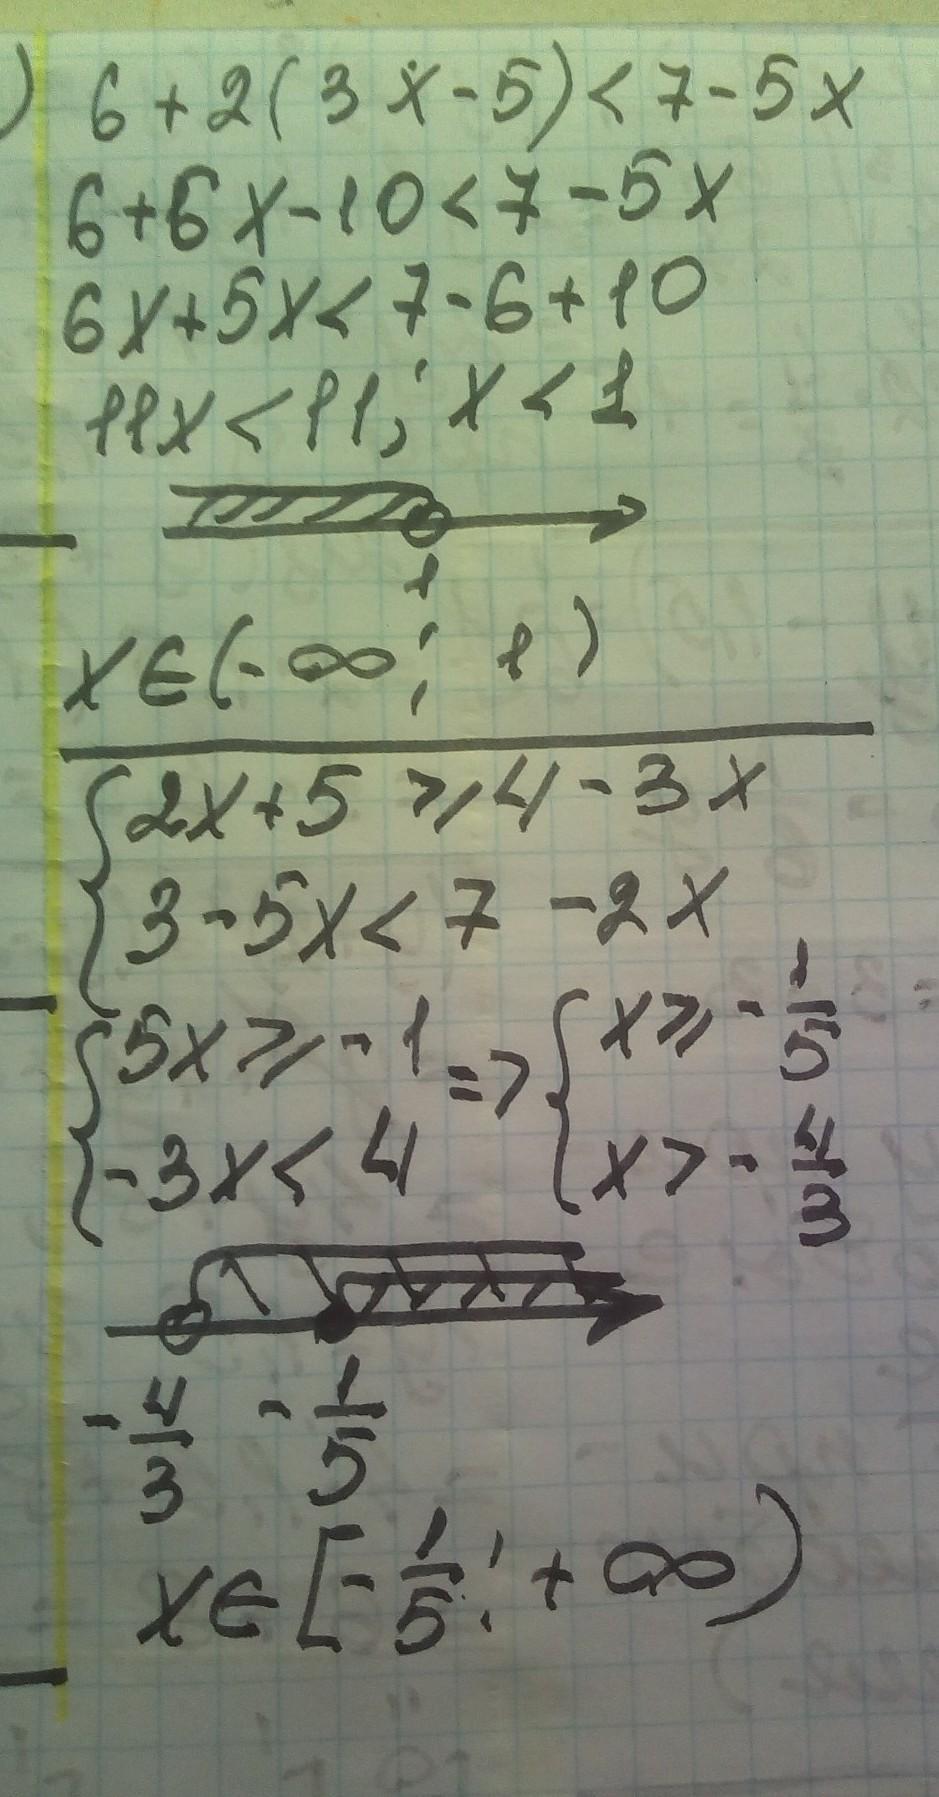 ) 6+2(3x-5)<7-5x
6+6x-10<7-5x
6x+5x<7-6+10
11x<11; x<1
1
x∈(-∞; 1)
{2x+5⩾4-3x
3-5x<7-2x
{5x⩾-1 => {x⩾-1/5
-3x<4 x>-4/3
-4/3 -1/5
x∈[-1/5; +∞)